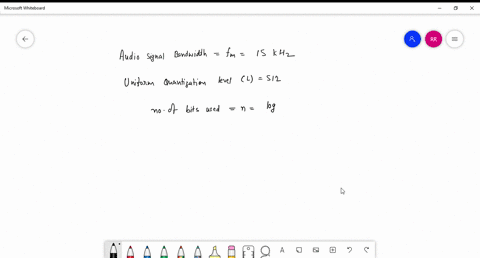 Microsoft Whiteboard
RK
Audio Signal Bandwidth = fm = 15 kHz
Uniform Quantization level (L) = 512
no. of bits used = n = log
A